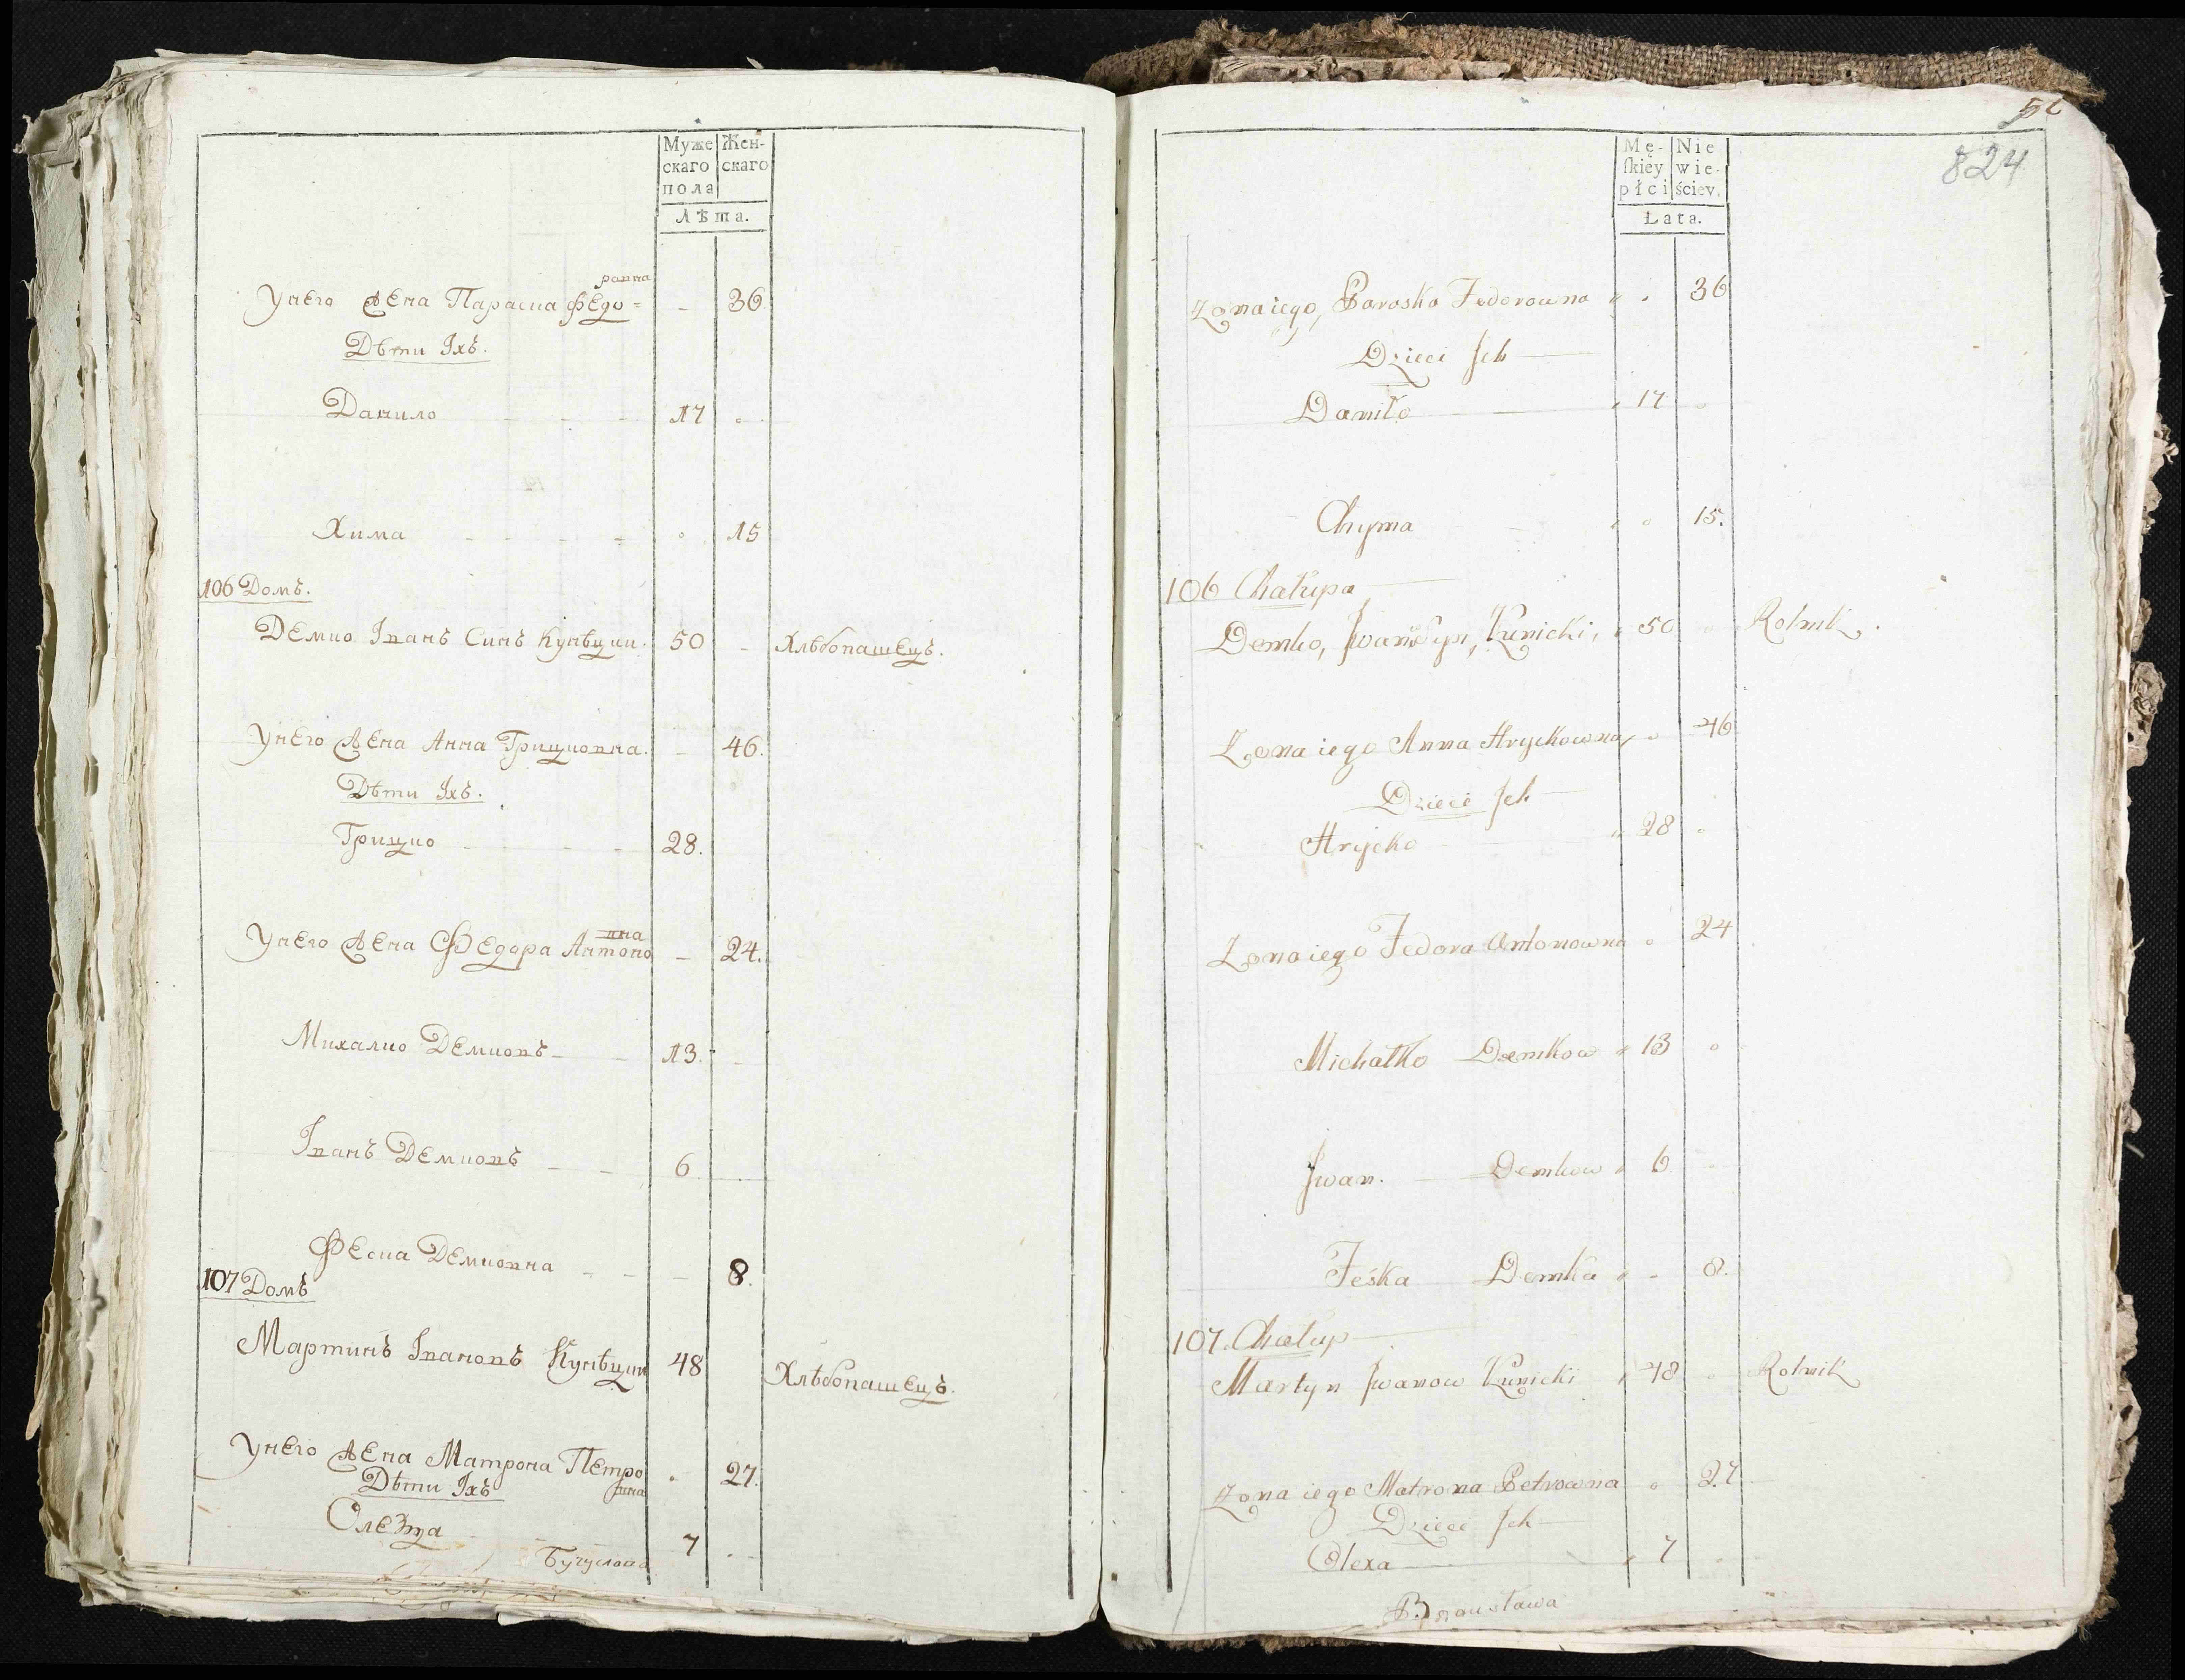 Муже
скаго
пола
Жен-
скаго
Лѣта.
ранна
Унего Жена Параска Федо= - 36
Дѣти Іхъ.
Данило 17
Хима 15
106 Домъ.
Демко Іванъ Синъ Кунѣцки. 50 - Хлѣбопашецъ.
Унего Жена Анна Грицковна. - 46.
Дѣти Іхъ.
Грицко 28.
вна
Унего Жена Федора Антоно - 24.
Михалко Демковъ 13.
Іванъ Демковъ 6
Феска Демковна - 8.
107 Домъ
Мартинъ Івановъ Кунѣцки 48 Хлѣбопашецъ.
Унего Жена Матрона Петро 27.
вна
Дѣти Іхъ
Олекса 7
52
824
Mę-
skiey
płci
Nie
wie-
ściey.
Lata.
Zona iego, Paraska Fedorowna 36
Dzieci Jch
Daniło 17
Chyma 15.
106 Chałupa
Demko, Jwan Syn, Kunicki, 50 Rolnik.
Zona iego Anna Hryckowna 46
Dzieci Jch
Hrycko 28
Zona iego Fedora Antonowna 24
Michałko Demkow 13
Jwan. Demkow 6
Feśka Demka 8.
107. Chałup
Martyn Jwanow Kunicki 48 Rolnik
Zona iego Matrona Petrowna 27
Dzieci Jch
Olexa 7